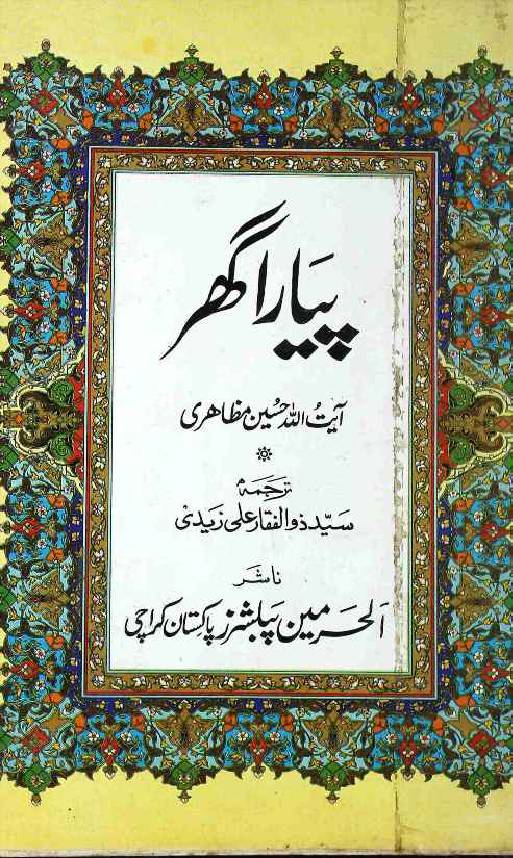 پیارا گھر
آیت اللہ حسین مظاہری
ترجمہ
سید ذوالفقار علی زیدی
ناشر
الحرمین پبلشرز پاکستان کراچی